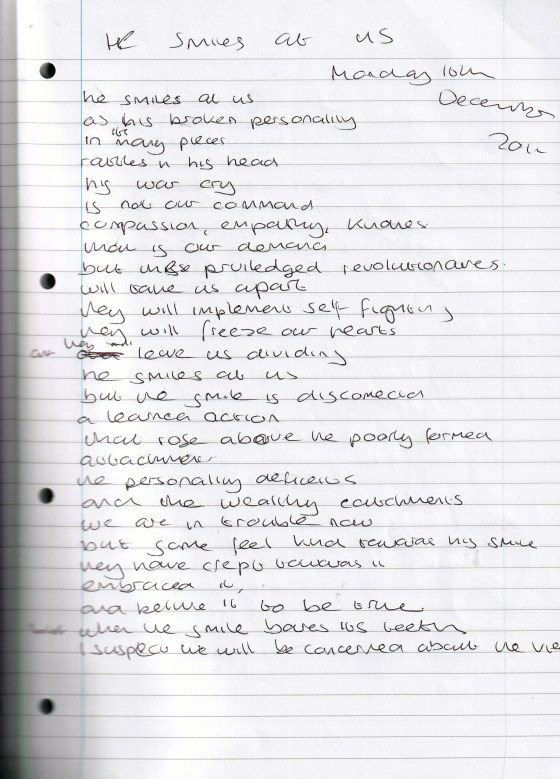 He Smiles at us
Monday 16th
December
he smiles at us
as his broken personality
in its many pieces
rattles in his head
his war cry
is not our command
compassion, empathy,
is our demand
but these priviledged revolutionaries.
will take us apart
they will implement self fighting
they will freeze our hearts
they will leave us dividing
he smiles at us
but the smile is disconnected
a learned action
that rose above the poorly formed
attachment
the personality deficits
and the wealthy catchments
we are in trouble now
but some feel kind towards his smile
they have crept towards it
embraced it,
and believe it to be true
when the smile bares its teeth
I suspect we will be concerned about the